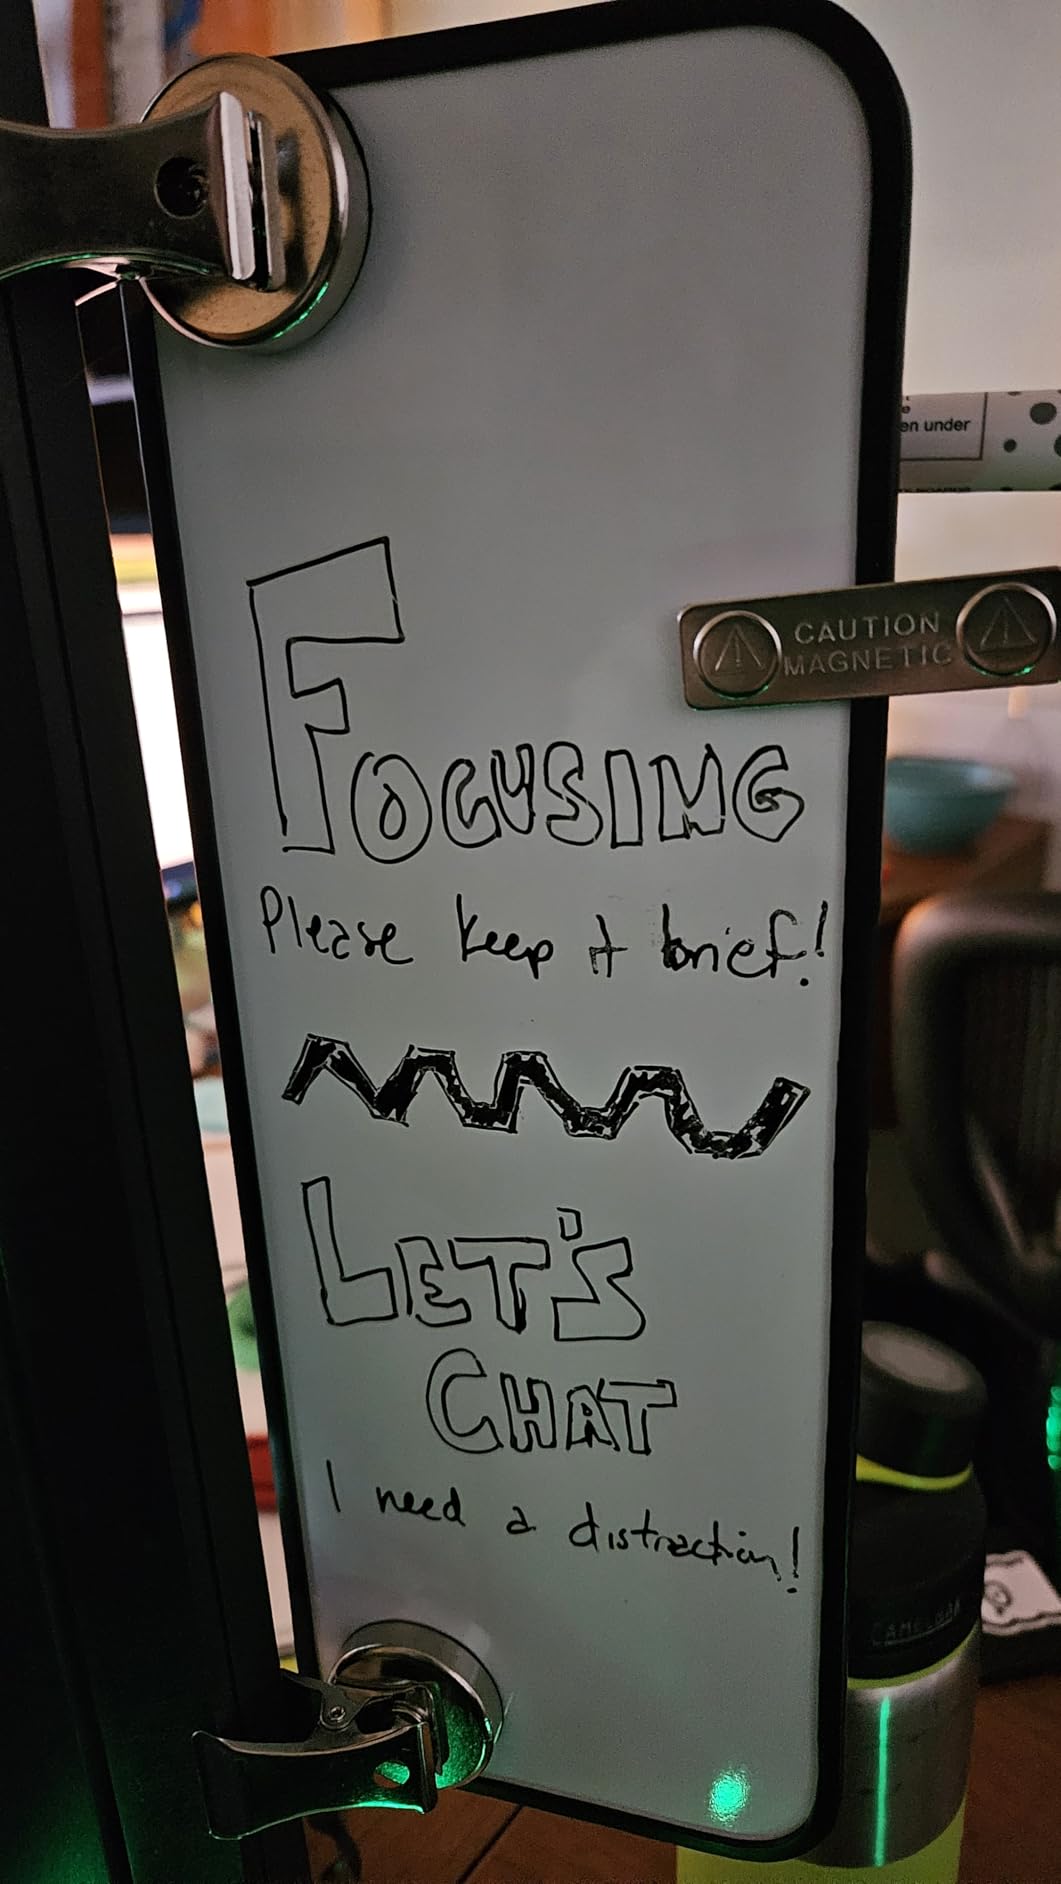 en under
CAUTION
MAGNETIC
FOCUSING
Please keep it brief!
LET'S
CHAT
I need a distraction!
CAMELBAK